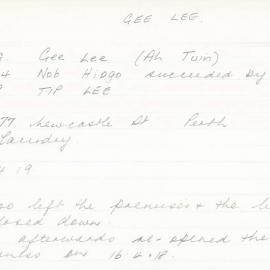 GEE LEE.
9. Gee Lee (Ah Tuin)
4 Nob Hidgo succeeded by
TIP LEE
77 Newcastle St Perth
Laundry
4 19
left the premises & the
closed down.
afterwards re-opened the
on 16.4.18.